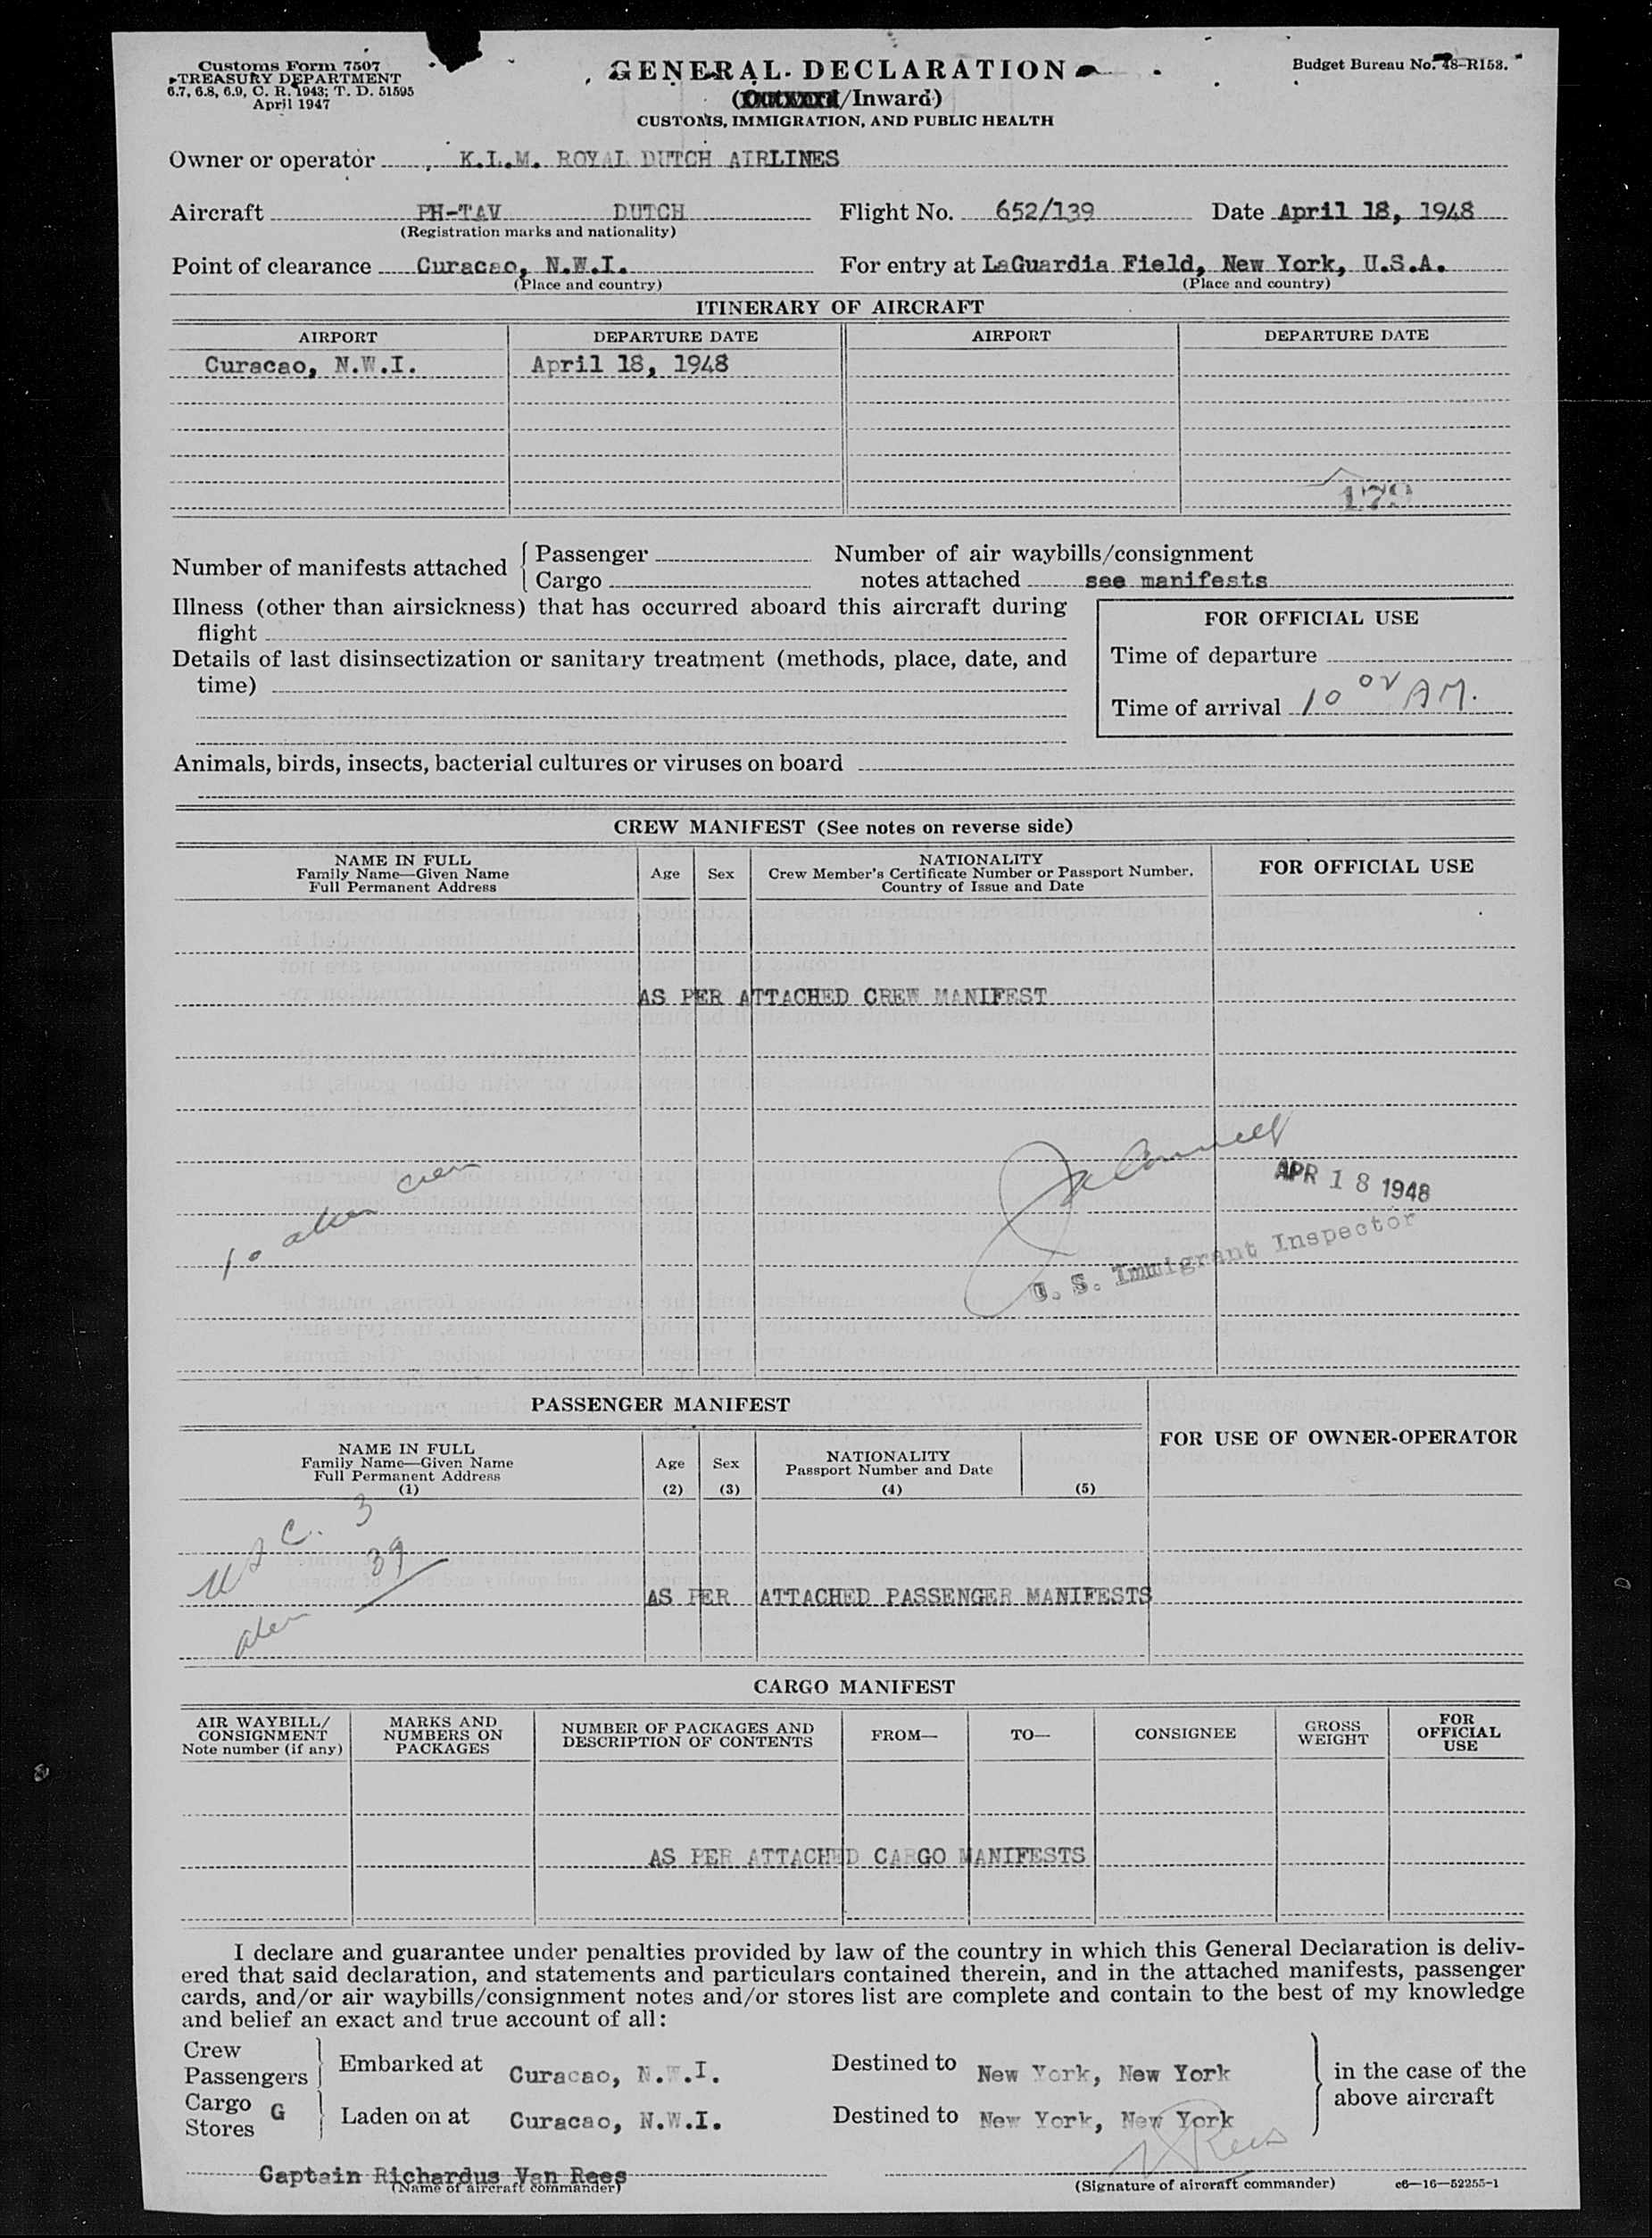 Customs Form 7507
TREASURY DEPARTMENT
6.7, 6.8, 6.9, C. R. 1943; T. D. 51595
April 1947
GENERAL DECLARATION
(Outward/Inward)
CUSTOMS, IMMIGRATION, AND PUBLIC HEALTH
Budget Bureau No. 48-R153.
Owner or operator K.L.M. ROYAL DUTCH AIRLINES
Aircraft PH-TAV DUTCH Flight No. 652/139 Date April 18, 1948
(Registration marks and nationality)
Point of clearance Curacao, N.W.I. For entry at LaGuardia Field, New York, U.S.A.
(Place and country) (Place and country)
ITINERARY OF AIRCRAFT
AIRPORT DEPARTURE DATE AIRPORT DEPARTURE DATE
Curacao, N.W.I. April 18, 1948
179
Number of manifests attached { Passenger
Cargo
Number of air waybills/consignment
notes attached see manifests
Illness (other than airsickness) that has occurred aboard this aircraft during
flight
Details of last disinsectization or sanitary treatment (methods, place, date, and
time)
FOR OFFICIAL USE
Time of departure
Time of arrival 10 02 AM.
Animals, birds, insects, bacterial cultures or viruses on board
CREW MANIFEST (See notes on reverse side)
NAME IN FULL
Family Name—Given Name
Full Permanent Address
Age
Sex
NATIONALITY
Crew Member's Certificate Number or Passport Number.
Country of Issue and Date
FOR OFFICIAL USE
AS PER ATTACHED CREW MANIFEST
10 alien crew
APR 18 1948
U. S. Immigrant Inspector
PASSENGER MANIFEST
FOR USE OF OWNER-OPERATOR
NAME IN FULL
Family Name—Given Name
Full Permanent Address
(1)
Age
(2)
Sex
(3)
NATIONALITY
Passport Number and Date
(4)
(5)
USC. 3
alien 39
AS PER ATTACHED PASSENGER MANIFESTS
CARGO MANIFEST
AIR WAYBILL/
CONSIGNMENT
Note number (if any)
MARKS AND
NUMBERS ON
PACKAGES
NUMBER OF PACKAGES AND
DESCRIPTION OF CONTENTS
FROM—
TO—
CONSIGNEE
GROSS
WEIGHT
FOR
OFFICIAL
USE
AS PER ATTACHED CARGO MANIFESTS
I declare and guarantee under penalties provided by law of the country in which this General Declaration is deliv-
ered that said declaration, and statements and particulars contained therein, and in the attached manifests, passenger
cards, and/or air waybills/consignment notes and/or stores list are complete and contain to the best of my knowledge
and belief an exact and true account of all:
Crew
Passengers } Embarked at Curacao, N.W.I. Destined to New York, New York
Cargo G
Stores } Laden on at Curacao, N.W.I. Destined to New York, New York
in the case of the
above aircraft
Captain Richardus Van Rees
(Name of aircraft commander)
(Signature of aircraft commander)
c6—16—52255-1